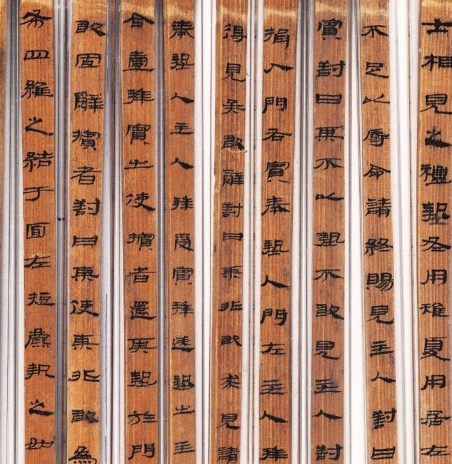 士相見之禮摯冬用雉夏用居左
不足以辱命請終賜見主人對曰
賓對曰某不以摯不敢見主人對
揖入門右賓奉摯入門左主人拜
得見矣敢辭對曰某非敢求見請
奉摯入主人拜受賓拜送摯出主
合壹拜賓出使擯者還其摯於門
敢固辭擯者對曰某使某非敢為
布四維之結于面左麛執之如